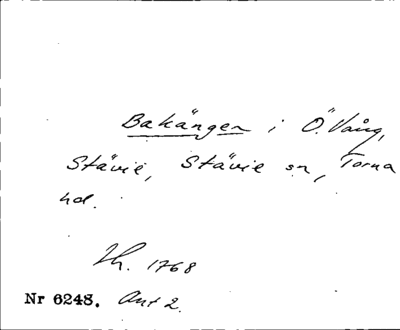 Bakängen i Ö. Vång,
Stävie, Stävie sn, Torna
hd.
Lh. 1768
Nr 6248. Akt 2.